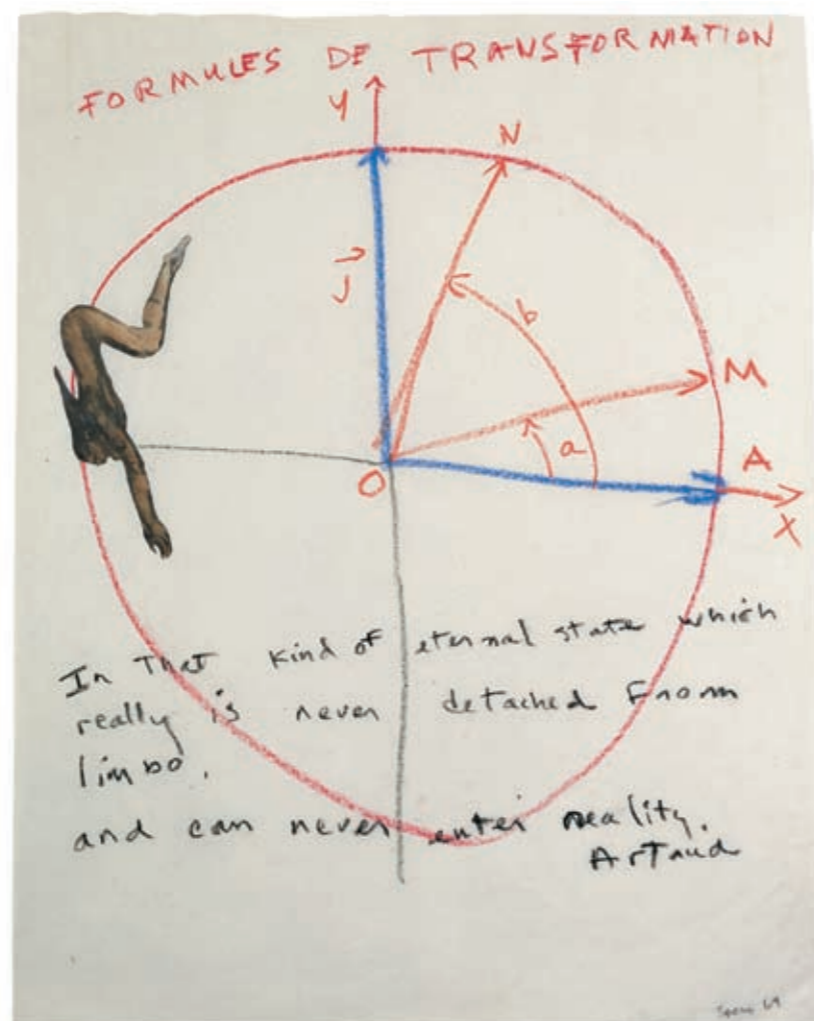 FORMULES DE TRANSFORMATION
Y
N
j
b
M
a
A
O
X
In That kind of eternal state which
really is never detached From
limbo.
and can never enter reality.
Artaud
69